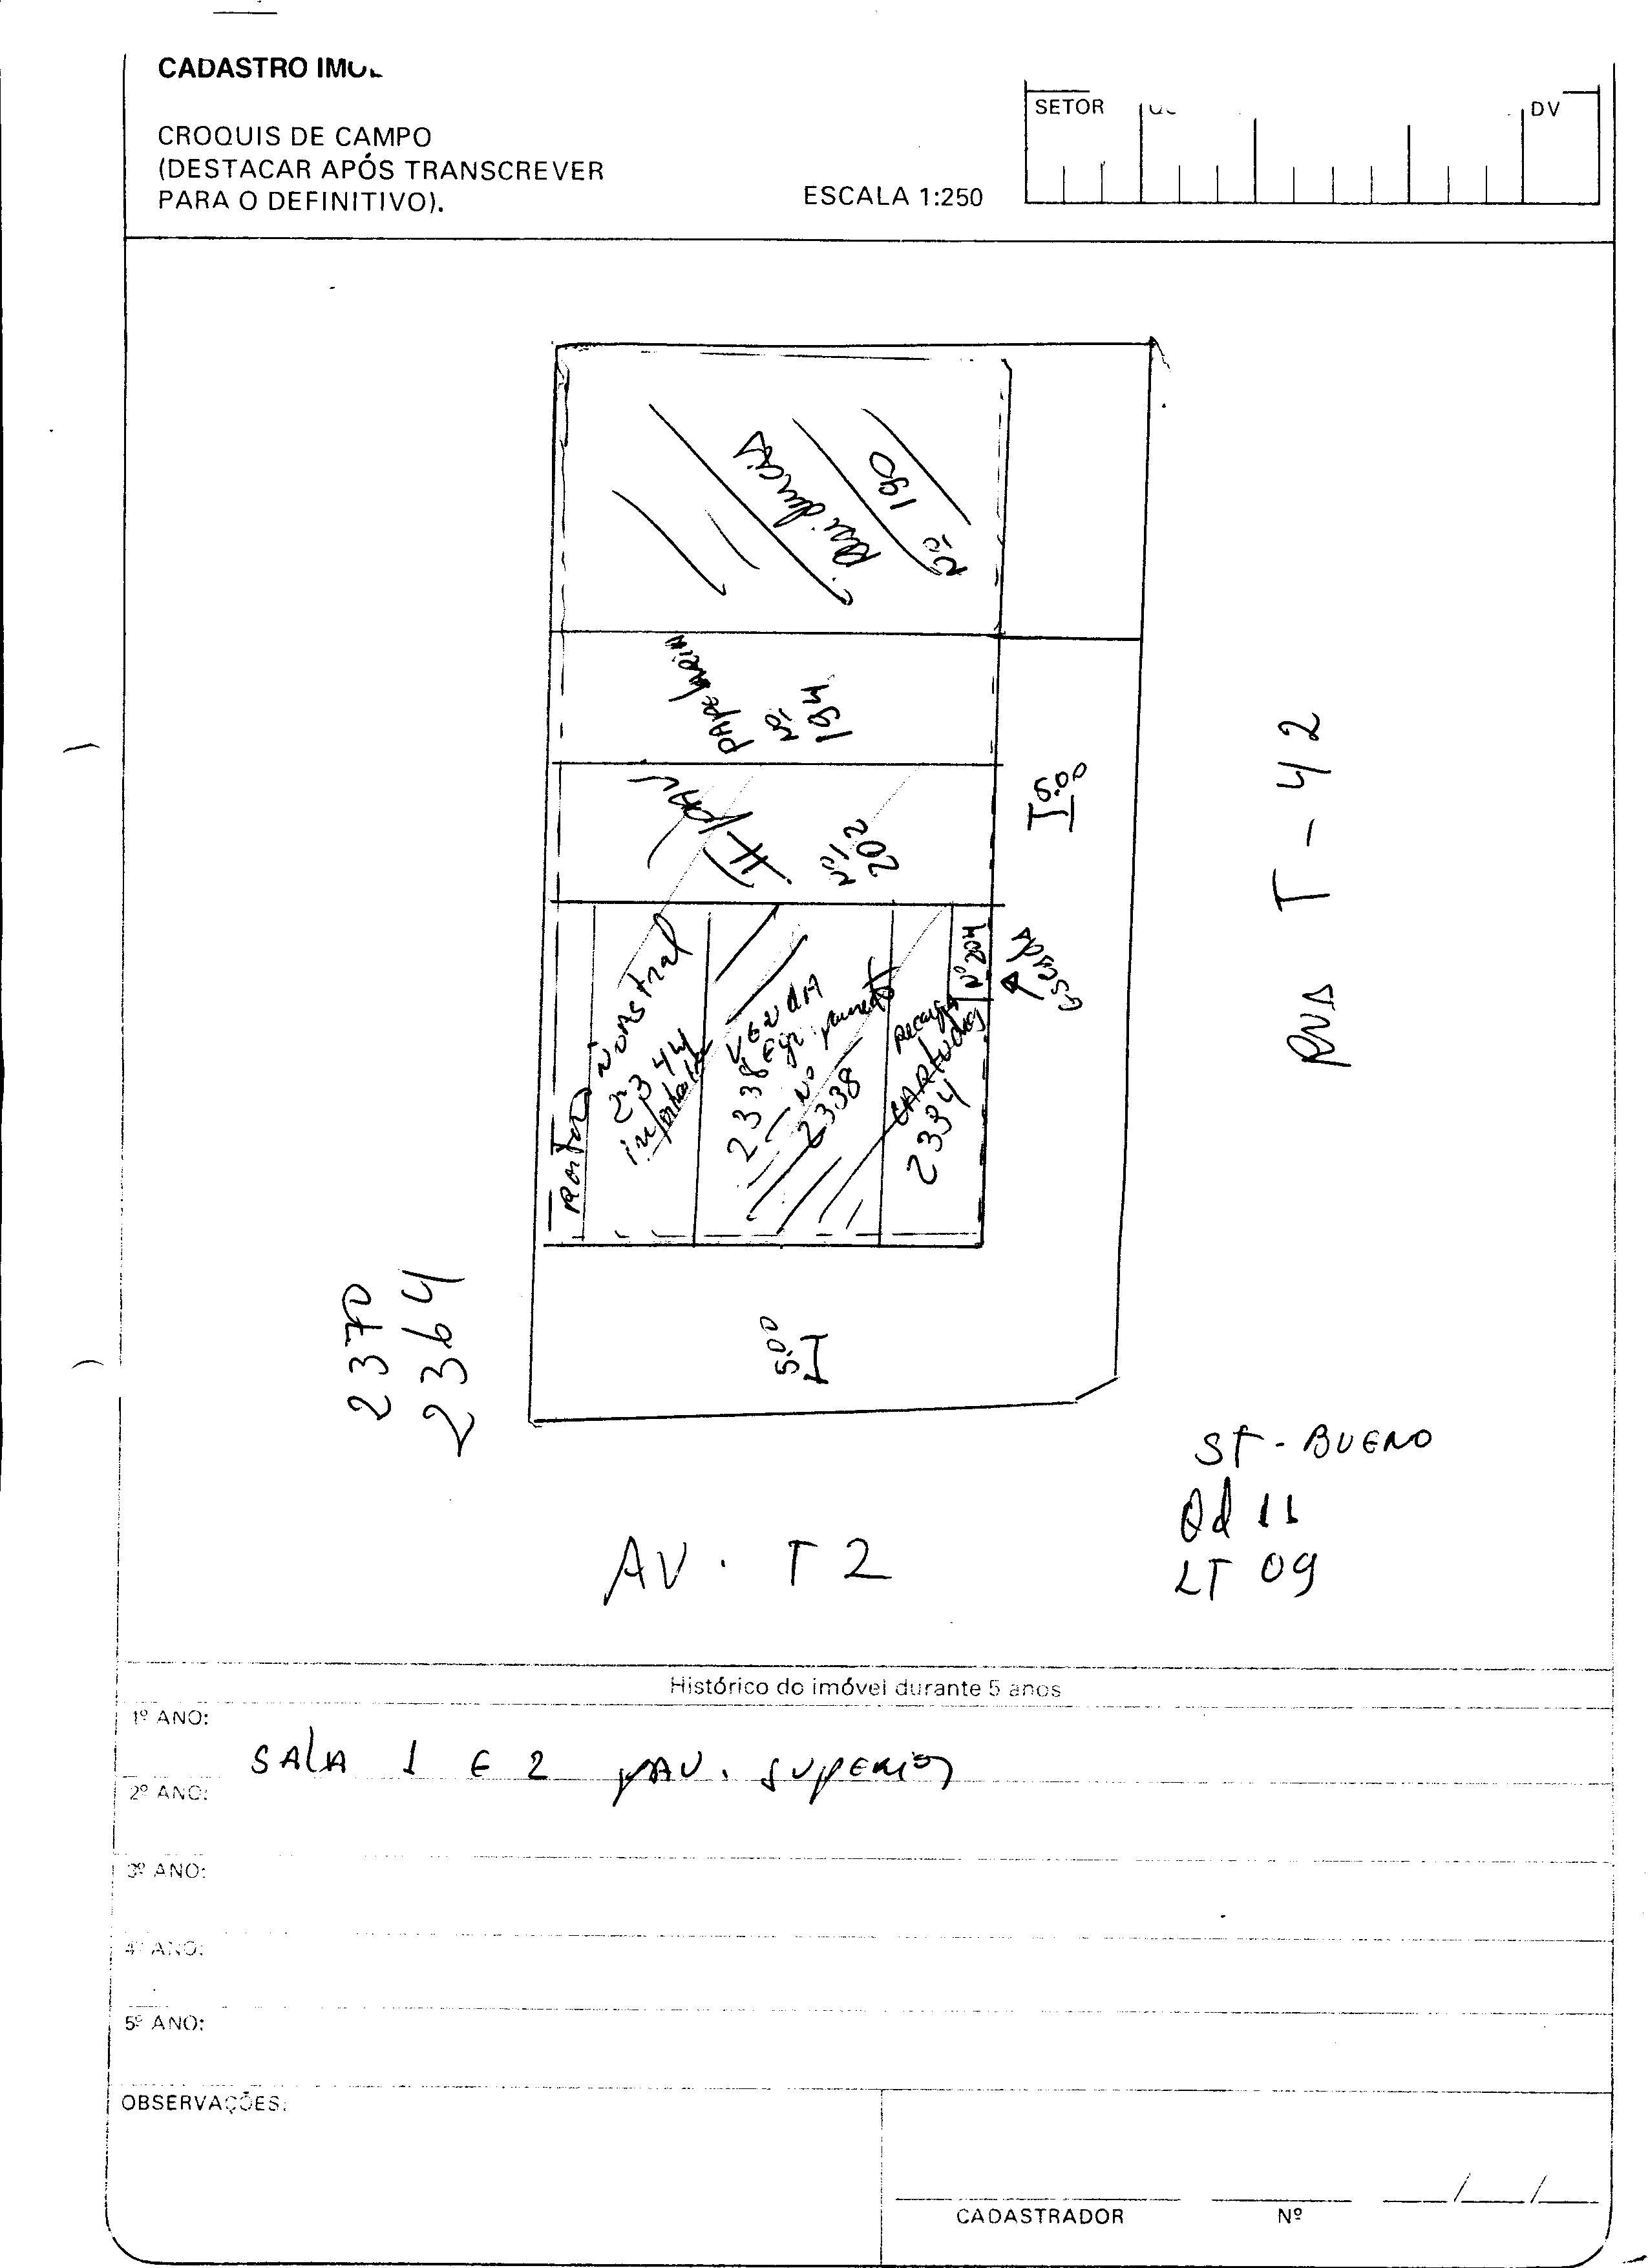 CADASTRO
CROQUIS DE CAMPO
(DESTACAR APÓS TRANSCREVER
PARA O DEFINITIVO).
ESCALA 1:250
SETOR
DV
Nº 190
PApelARIA
Nº
194
II PAV
Nº
202
5.00
RUA T-42
Nº 204
Escada
2344
VENDA
2338
Nº
2338
Recarga
CARtuchos
2334
2370
2364
5.00
ST - BUENO
Qd 11
LT 09
AV. T2
Histórico do imóvel durante 5 anos
1º ANO:
SALA 1 E 2 PAV. SUPERIOR
2º ANO:
3º ANO:
4º ANO:
5º ANO:
OBSERVAÇÕES:
CADASTRADOR
Nº